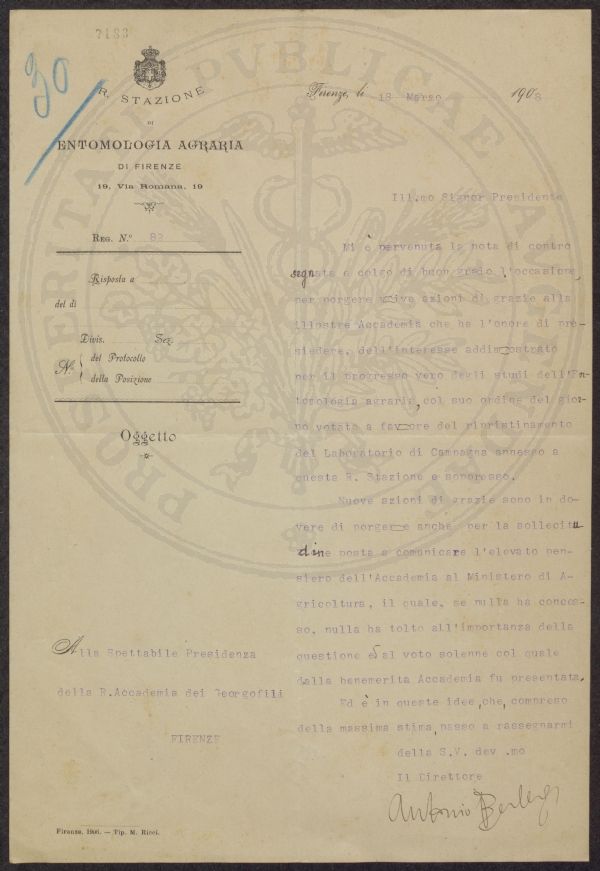 7183
30
R. STAZIONE
DI
ENTOMOLOGIA AGRARIA
DI FIRENZE
19, Via Romana, 19
REG. N.º 82
Risposta a
del dì
Divis. Sez.
N.º del Protocollo
della Posizione
Oggetto
Alla Spettabile Presidenza
della R.Accademia dei Georgofili
FIRENZE
Firenze, 1906. — Tip. M. Ricci.
Firenze, lì 18 Marzo 1908
Ill.mo Signor Presidente
Mi è pervenuta la nota di contro
segnata e colgo di buon grado l'occasione,
per porgere vive azioni di grazie alla
illustre Accademia che ha l'onore di pre-
siedere, dell'interesse addimostrato
per il progresso vero degli studi dell'En-
tomologia agraria, col suo ordine del gior-
no votato a favore del ripristinamento
del Laboratorio di Campagna annesso a
questa R. Stazione e soppresso.
Nuove azioni di grazie sono in do-
vere di porgere anche per la sollecitu
dine posta a comunicare l'elevato pen-
siero dell'Accademia al Ministero di A-
gricoltura, il quale, se nulla ha conces-
so, nulla ha tolto all'importanza della
questione e al voto solenne col quale
dalla benemerita Accademia fu presentata.
Ed è in queste idee, che, compreso
della massima stima, passo a rassegnarmi
della S.V. dev.mo
Il Direttore
Antonio Berlese
PROSPERITATI PUBLICAE AUGENDAE